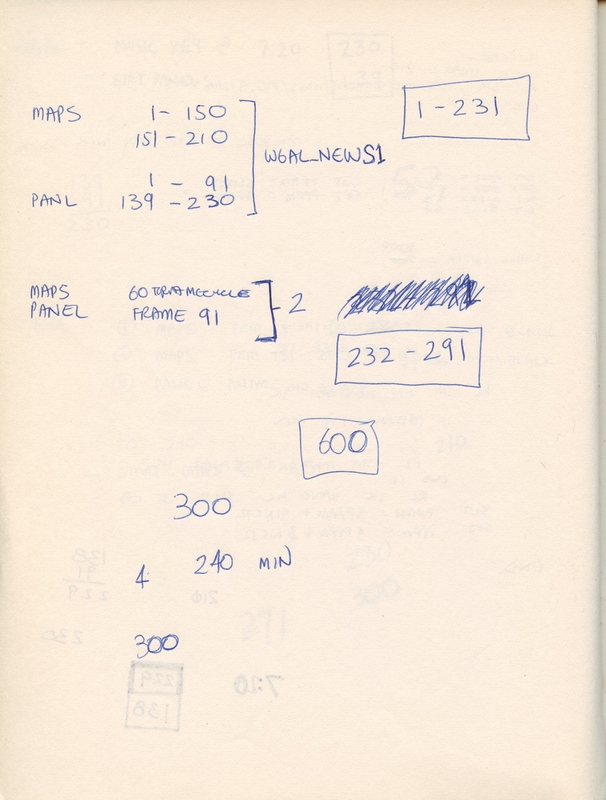 MAPS 1 - 150
1 - 231
151 - 210
WGAL_NEWS1
1 - 91
PANL 139 - 230
MAPS
PANEL FRAME 91
2
232 - 291
600
300
4 240 MIN
300